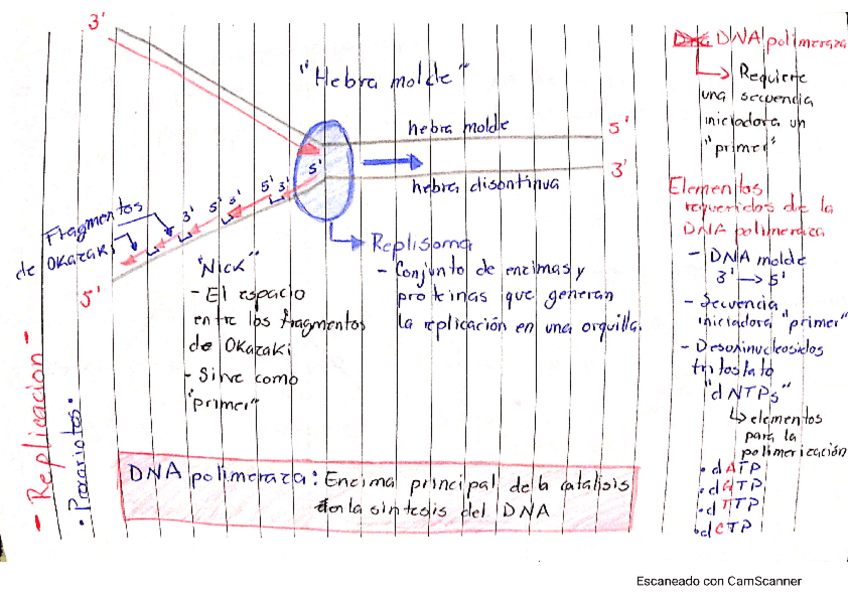 - Replicacion -
• Procariotos •
3'
"Hebra molde"
hebra molde
5'
5'
3'
hebra disontinua
5' 3'
5' 3'
3'
Fragmentos
de OKazaki
5'
"Nick"
- El espacio
entre los fragmentos
de OKazaki
- Sirve como
"primer"
Replisoma
- Conjunto de enzimas y
proteinas que generan
la replicación en una orquilla.
DNA polimeraza: Encima principal de la catalisis
en la sintesis del DNA
DNA polimeraza
Requiere
una secuencia
iniciadora un
"primer"
Elementos
requeridos de la
DNA polimeraza
- DNA molde
3' → 5'
- Secuencia
iniciadora "primer"
- Desoxinucleosidos
trifosfato
"dNTPs"
elementos
para la
polimerización
• dATP
• dGTP
• dTTP
• dCTP
Escaneado con CamScanner